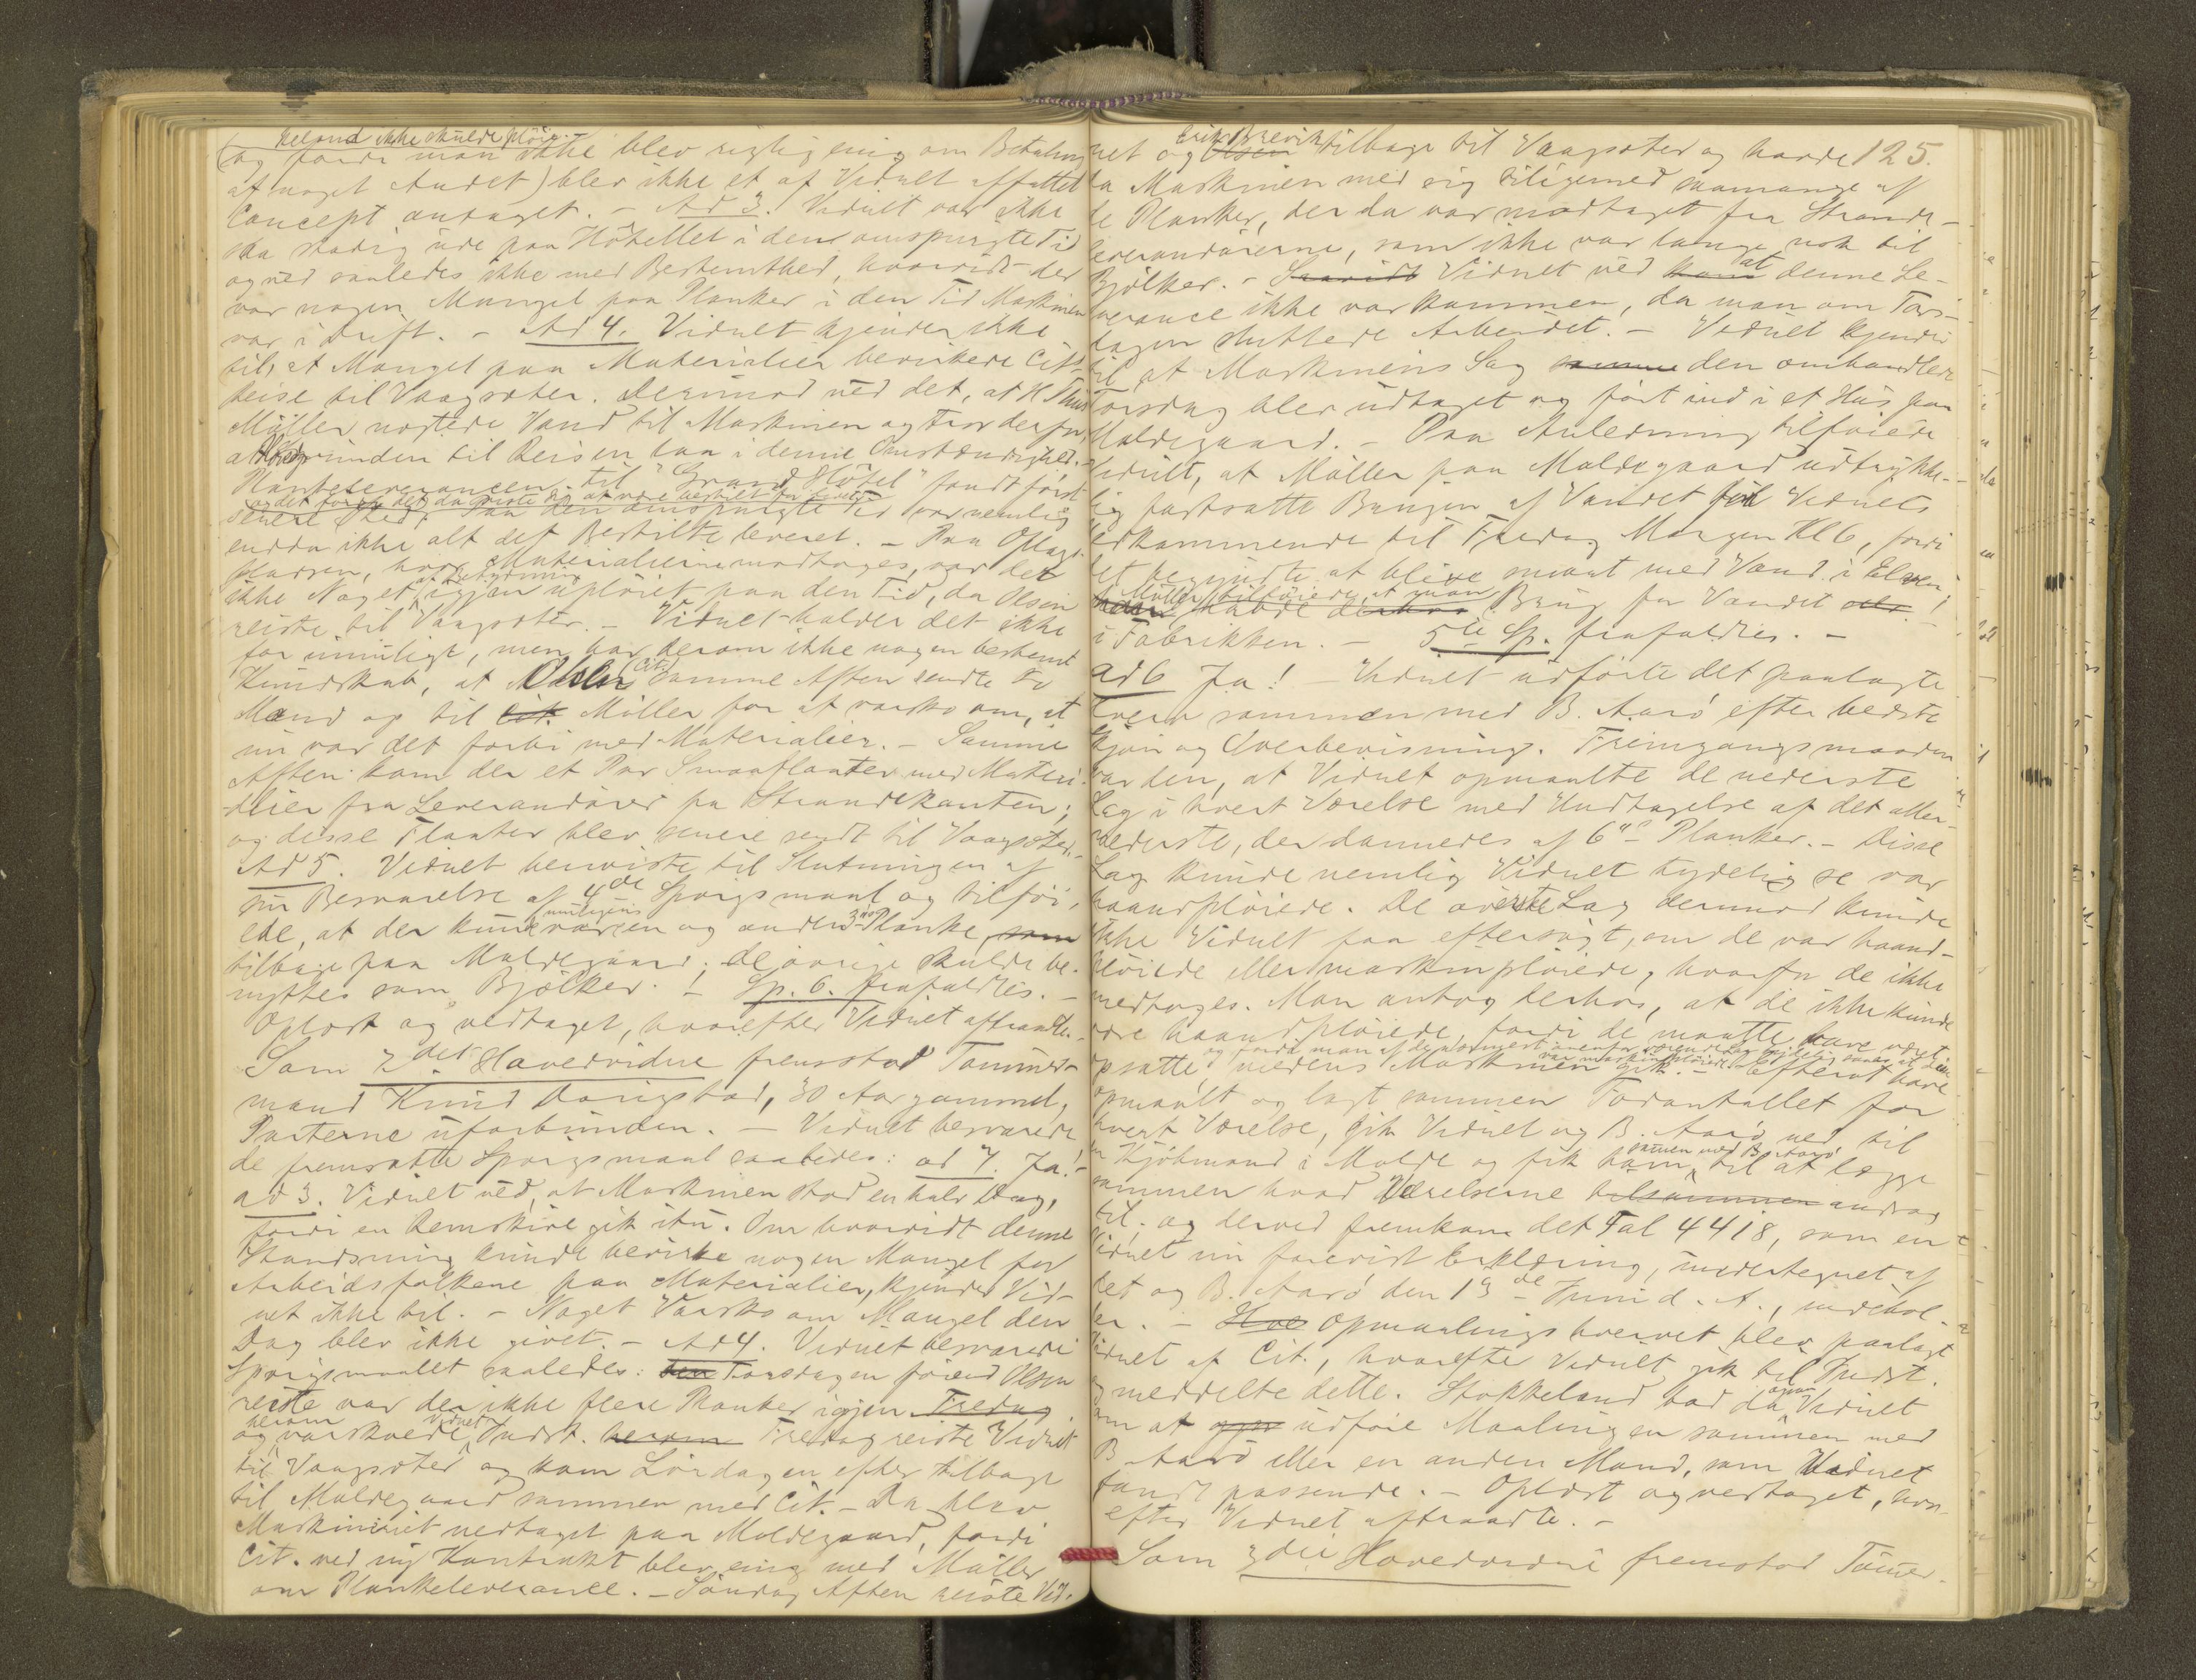 keland ikke skulde pløie
(og fordi man ikke blev rigtig enig om Betaling
af noget Andet) blev ikke et af Vidnet affattet
Concept antaget. – Ad 3. Vidnet var ikke
saa stadig ude paa Hôtellet i den omspurgte Tid
og ved saaledes ikke med Bestemthed, hvorvidt der
var nogen Mangel paa Planker i den Tid Maskinen
var i Drift. – Ad 4. Vidnet kjender ikke
til, at Mangel paa Materialier bevirkede Cit.s
Reise til Vaagsæter. Derimod ved det, at H. Thiis
Møller nægtede Vand til Maskinen og tror derfor,
at Grunden til Reisen laa i denne Omstændighed.
Plankeleverancen til "Grand Hôtel" fandt først
senere Sted. Paa den omspurgte Tid var nemlig
endda ikke alt det Bestilte leveret. – Paa Oplags-
pladsen, hvor Materialierne modtoges, var det
ikke Noget af Betydning igjen upløiet paa den Tid, da Olsen
reiste til Vaagsæter. – Vidnet holder det ikke
for umuligt, men har derom ikke nogen bestemt
Kundskab, at Olsen (Cit.) samme Aften sendte to
Mænd op til Cit. Møller for at varsko om, at
nu var det forbi med Materialier. – Samme
Aften kom der et Par Smaaflaater med Materi-
alier fra Leverandører fra Strandekanten;
og disse Flaater blev senere sendt til Vaagsæter.
Ad 5. Vidnet henviste til Slutningen af
sin Besvarelse af 4de Spørgsmaal og tilføi-
ede, at der kunde muligens være en og anden 3" Planke, som
tilbage paa Moldegaard; de øvrige skulde be-
nyttes som Bjølker. – Sp. 6. frafaldtes. –
Oplæst og vedtaget, hvorefter Vidnet aftraadte. –
Som 2det Hovedvidne fremstod Tømmer-
mand Knud Haugstad, 30 Aar gammel,
Parterne uforbunden. – Vidnet besvarede
de fremsatte Spørgsmaal saaledes: ad 1. Ja! –
ad 3. Vidnet ved, at Maskinen stod en halv Dag,
fordi en Remskive gik itu. Om hvorvidt denne
Standsning kunde bevirke nogen Mangel for
Arbeidsfolkene paa Materialier, kjender Vid-
net ikke til. – Noget Varsko om Mangel den
Dag blev ikke givet. – Ad 4. Vidnet besvarede
Spørgsmaalet saaledes: den Torsdagen førend Olsen
reiste var der ikke flere Planker igjen Fredag
og varskoede Vidnet herom Indst. herom Fredag reiste Vidnet
til Vaagsæter og kom Lørdagen efter tilbage
til Moldegaard sammen med Cit. – Da blev
Maskineriet nedtaget paa Moldegaard, fordi
Cit. ved ny Kontrakt blev enig med Møller
om Plankeleverance. – Søndag Aften reiste Vid-
125.
net og Olsen Erik Brevik tilbage til Vaagsæter og havde
da Maskinen med sig tilligemed saamange af
de Planker, der da var modtaget fra Strande-
leverandørerne, som ikke var lange nok til
Bjølker. – Saavidt Vidnet ved kom at denne Le-
verance ikke var kommen, da man om Tors-
dagen sluttede Arbeidet. – Vidnet kjender
til, at Maskinens Sag samme den omhandlede
Torsdag blev udtaget og ført ind i et Hus paa
Moldegaard. – Paa Anledning tilføiede
Vidnet, at Møller paa Moldegaard udtrykke-
lig fastsatte Brugen af Vandet for Vidnets
Vedkommende til Fredag Morgen Kl 6, fordi
det begyndte at blive smaat med Vand i Elven;
Møller tilføiede, at man havde Brug for Vandet
i Fabrikken. – 5te Sp. frafaldtes. –
ad 6 Ja! – Vidnet udførte det paalagte
Hverv sammen med B. Aarø efter bedste
Skjøn og Overbevisning. Fremgangsmaaden
var den, at Vidnet opmaalte de nederste
Lag i hvert Værelse med Undtagelse af det aller-
nederste, der dannedes af 6" Planker. – Disse
Lag kunde nemlig Vidnet tydelig se var
haandpløiede. De øverste Lag derimod kunde
ikke Vidnet faa eftersøgt, om de var haand-
pløiede eller maskinpløiede, hvorfor de ikke
medtoges. Man antog derhos, at de ikke kunde
være haandpløiede, fordi de maatte have været
opsatte medens Maskinen gik. – Efterat have
opmaalt og lagt sammen Fodantallet for
hvert Værelse, gik Vidnet og B. Aarø ned til
en Kjøbmand i Molde og fik ham sammen med B. Aarø til at lægge
sammen hvad Værelserne tilsammen androg
til; og derved fremkom det Tal 4418, som en
Vidnet nu forevist Erklæring, undertegnet af
det og B. Aarø den 19de Juni d. A., indehol-
der. – Hve Opmaalingshvervet blev paalagt
Vidnet af Cit., hvorefter Vidnet gik til Indst.
og meddelte dette. Stokkeland bad da ogsaa Vidnet
om at udføre Maalingen sammen med
B. Aarø eller en anden Mand, som Vidnet
fandt passende. – Oplæst og vedtaget, hvor-
efter Vidnet aftraadte. –
Som 3die Hovedvidne fremstod Tømmer-